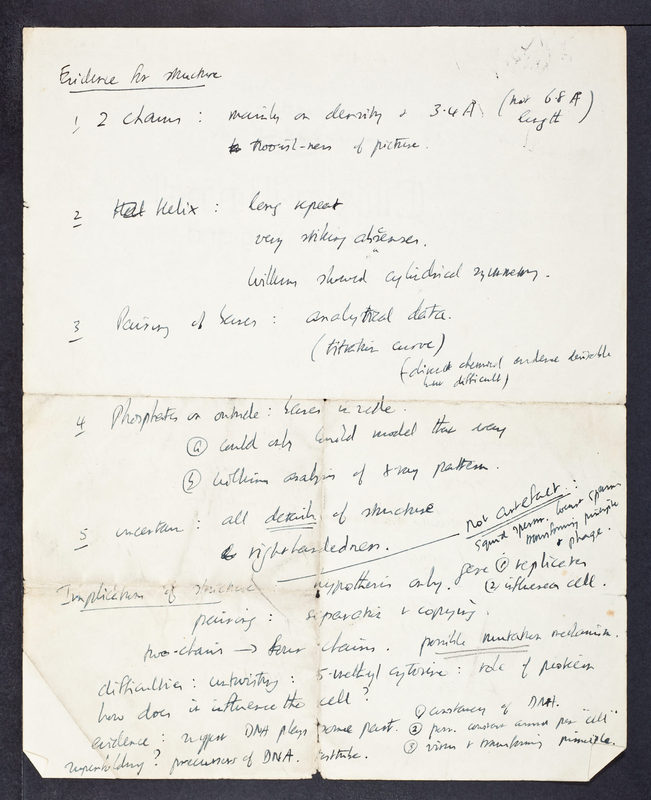 Evidence for structure
1 2 chains : mainly on density & 3.4 Å (not 6.8 Å)
length
of picture.
2 Helix : long repeat
very striking absences.
Wilkins showed cylindrical symmetry.
3 Pairing of bases : analytical data.
(titration curve)
(direct chemical evidence desirable
but difficult)
4 Phosphates on outside : bases inside.
(a) could only build model that way
(b) Wilkins analysis of X ray pattern.
5 uncertain : all details of structure
righthandedness.
not artefact :
squid sperm. locust sperm
transforming principle
& phage.
Implications of structure hypothesis only. gene (1) replicates
(2) influences cell.
pairing : separation & copying.
two-chains → four chains. possible mutation mechanism.
difficulties : untwisting : 5-methyl cytosine : role of protein
how does it influence the cell ?
evidence : suggest DNA plays some part. (1) constancy of DNA.
(2) constant amount per "cell"
(3) virus & transforming principle.
superfolding ? precursors of DNA.